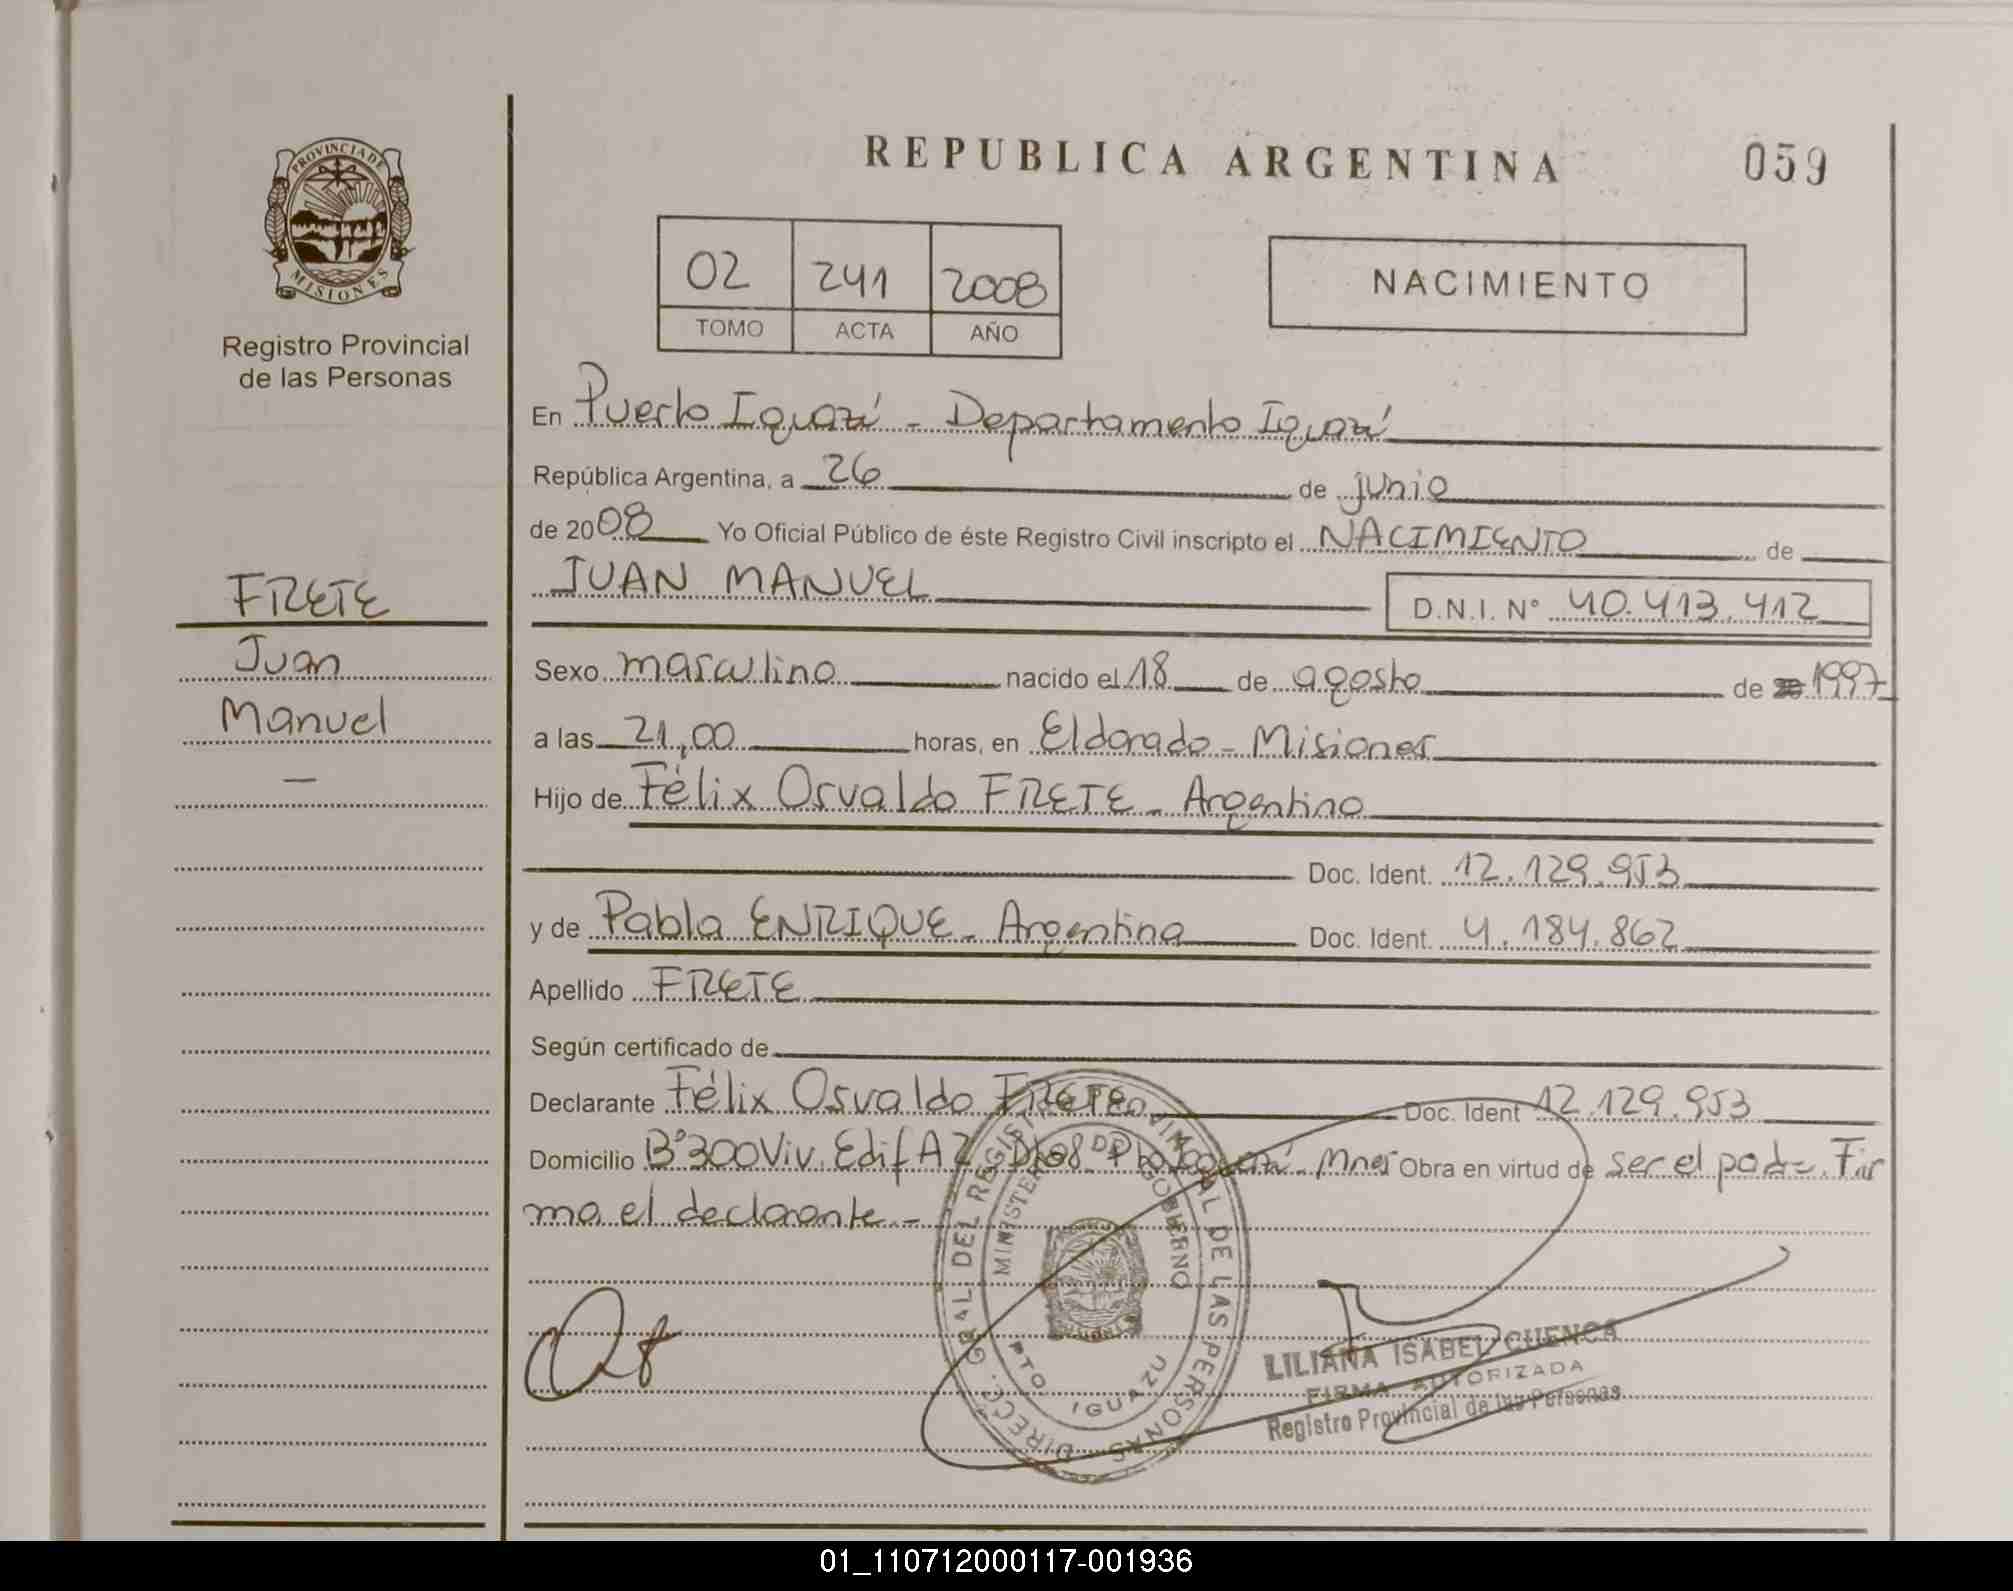 PROVINCIA DE
MISIONES
Registro Provincial
de las Personas
FRETE
Juan
Manuel
—
REPUBLICA ARGENTINA
059
02 241 2008
TOMO ACTA AÑO
NACIMIENTO
En Puerto Iguazú - Departamento Iguazú
República Argentina, a 26 de junio
de 2008 Yo Oficial Público de éste Registro Civil inscripto el NACIMIENTO de
JUAN MANUEL D.N.I. N° 40.413.412
Sexo masculino nacido el 18 de agosto de 1997
a las 21,00 horas, en Eldorado - Misiones
Hijo de Félix Osvaldo FRETE - Argentino
Doc. Ident. 12.129.953
y de Pabla ENRIQUE - Argentina Doc. Ident. 4.184.862
Apellido FRETE
Según certificado de
Declarante Félix Osvaldo FRETE Doc. Ident 12.129.953
Domicilio B° 300 Viv. Edif A2 Dto 8 - Pto Iguazú - Mnes Obra en virtud de ser el padre. Fir
ma el declarante.-
DIRECC. GRAL DEL REGISTRO PROVINCIAL DE LAS PERSONAS
MINISTERIO DE GOBIERNO
PTO IGUAZU
LILIANA ISABEL CUENCA
FIRMA AUTORIZADA
Registro Provincial de las Personas
01_110712000117-001936